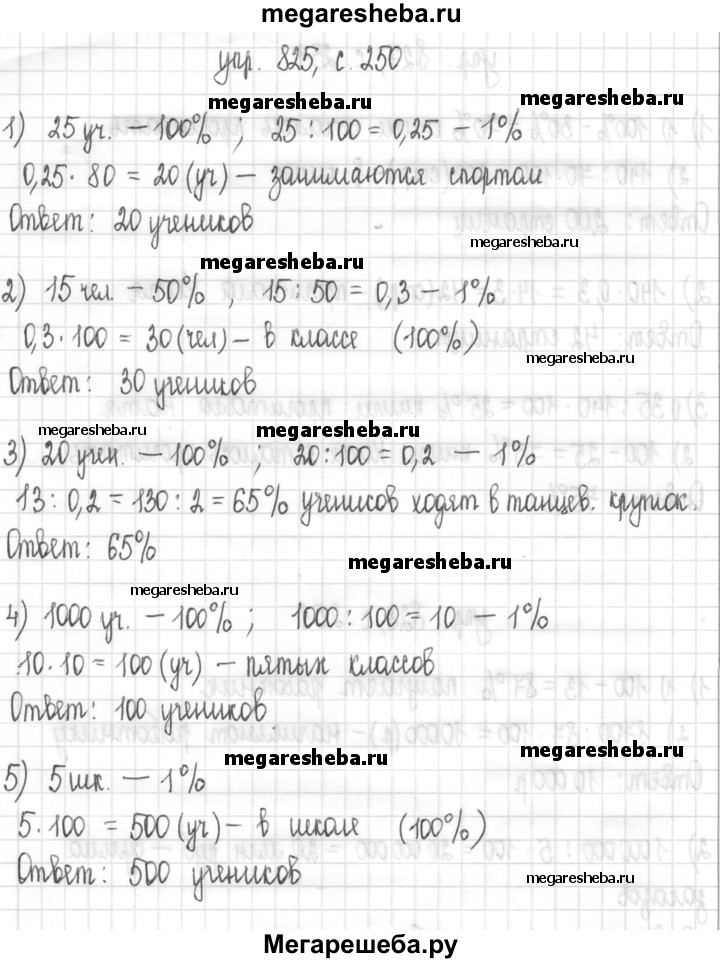 megaresheba.ru
упр. 825, с. 250
megaresheba.ru
megaresheba.ru
1) 25 уч. – 100% , 25 : 100 = 0,25 – 1%
0,25 · 80 = 20 (уч) – занимаются спортом
Ответ: 20 учеников
megaresheba.ru
megaresheba.ru
2) 15 чел. – 50% , 15 : 50 = 0,3 – 1%
0,3 · 100 = 30 (чел) – в классе (100%)
megaresheba.ru
Ответ: 30 учеников
megaresheba.ru
megaresheba.ru
3) 20 учен. – 100% ; 20 : 100 = 0,2 – 1%
13 : 0,2 = 130 : 2 = 65% учеников ходят в танцев. кружок.
Ответ: 65%
megaresheba.ru
megaresheba.ru
4) 1000 уч. – 100% ; 1000 : 100 = 10 – 1%
10 · 10 = 100 (уч) – пятых классов
Ответ: 100 учеников
megaresheba.ru
megaresheba.ru
5) 5 шк. – 1%
5 · 100 = 500 (уч) – в школе (100%)
Ответ: 500 учеников
megaresheba.ru
Мегарешеба.ру